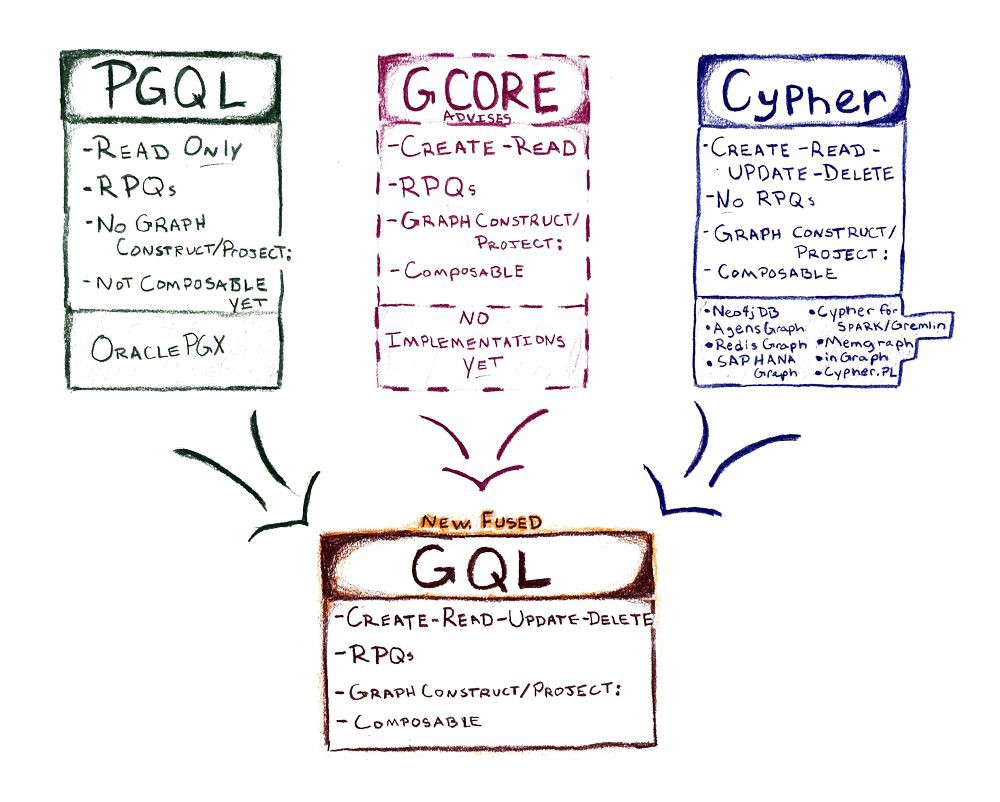 PGQL
-READ ONLY
-RPQs
-NO GRAPH
CONSTRUCT/PROJECT:
-NOT COMPOSABLE
YET
ORACLE PGX
GCORE
ADVISES
-CREATE-READ
-RPQs
-GRAPH CONSTRUCT/
PROJECT:
-COMPOSABLE
NO
IMPLEMENTATIONS
YET
Cypher
-CREATE-READ-
UPDATE-DELETE
-NO RPQs
-GRAPH CONSTRUCT/
PROJECT:
-COMPOSABLE
•Neo4j DB
•AgensGraph
•RedisGraph
•SAP HANA
Graph
•Cypher for
SPARK/Gremlin
•Memgraph
•inGraph
•Cypher.PL
NEW, FUSED
GQL
-CREATE-READ-UPDATE-DELETE
-RPQs
-GRAPH CONSTRUCT/PROJECT:
-COMPOSABLE